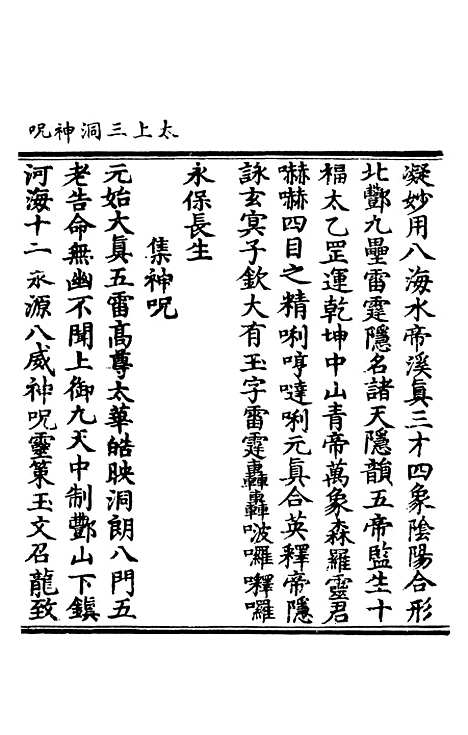 太上三洞神呪
凝妙用八海水帝溪真三才四象陰陽合形
北酆九壘雷霆隱名諸天隱韻五帝監生十
楅太乙罡運乾坤中山青帝萬象森羅靈君
嚇嚇四目之精唎㖇噠唎元真合英釋帝隱
詠玄冥子欽大有玉字雷霆轟轟啵囉釋囉
永保長生
集神呪
元始大真五雷高尊太華皓映洞朗八門五
老告命無幽不聞上御九天中制酆山下鎮
河海十二永源八威神呪靈策玉文召龍致